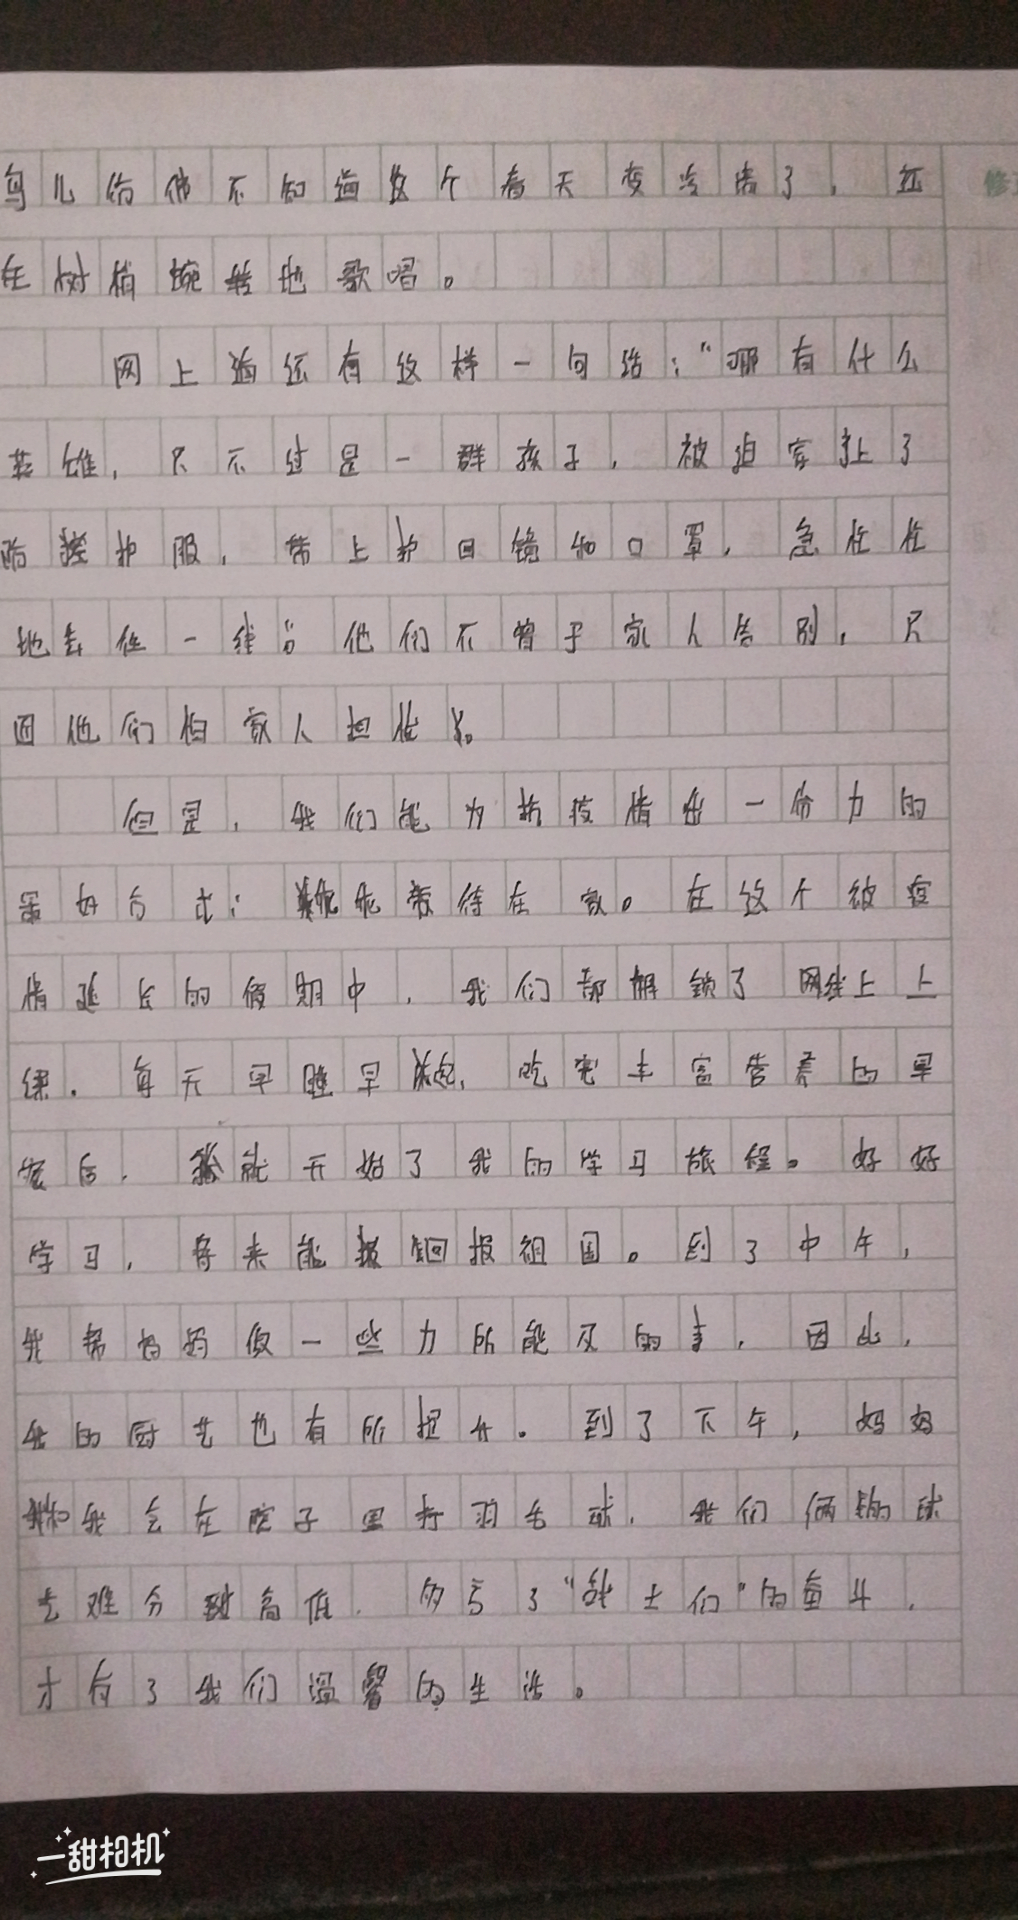 鸟儿仿佛不知道这个春天变凄清了，还
在树梢婉转地歌唱。
网上还有这样一句话：“哪有什么
英雄，只不过是一群孩子，被迫穿上了
防护服，带上护目镜和口罩，急忙忙
地去往一线。”他们不曾于家人告别，只
因他们怕家人担忧。
但是，我们能为抗疫情出一份力的
最好方式：乖乖待在家。在这个被疫
情延长的假期中，我们都解锁了网线上上
课。每天早睡早起，吃完丰富营养的早
餐后，我就开始了我的学习旅程。好好
学习，将来能回报祖国。到了中午，
我帮妈妈做一些力所能及的事，因此，
我的厨艺也有所提升。到了下午，妈妈
和我会在院子里打羽毛球，我们俩的球
艺难分高低。多亏了“战士们”的奋斗，
才有了我们温馨的生活。
修
一甜相机